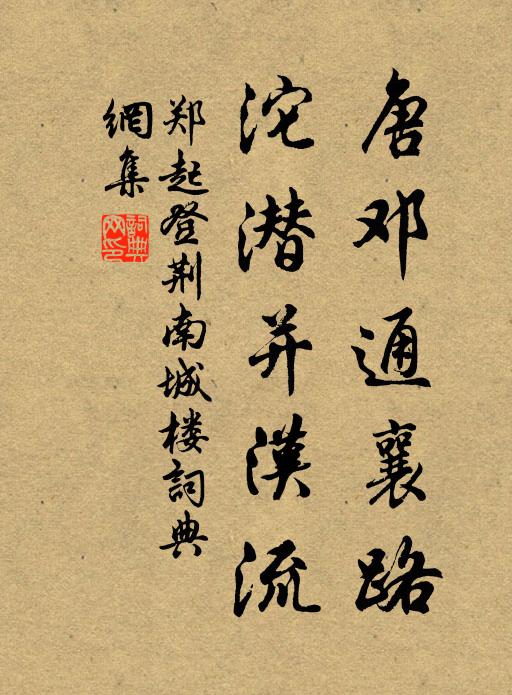 唐邓通襄路
沱潜并漢流
郑起登荆南城楼詞典
網集
詞典網印